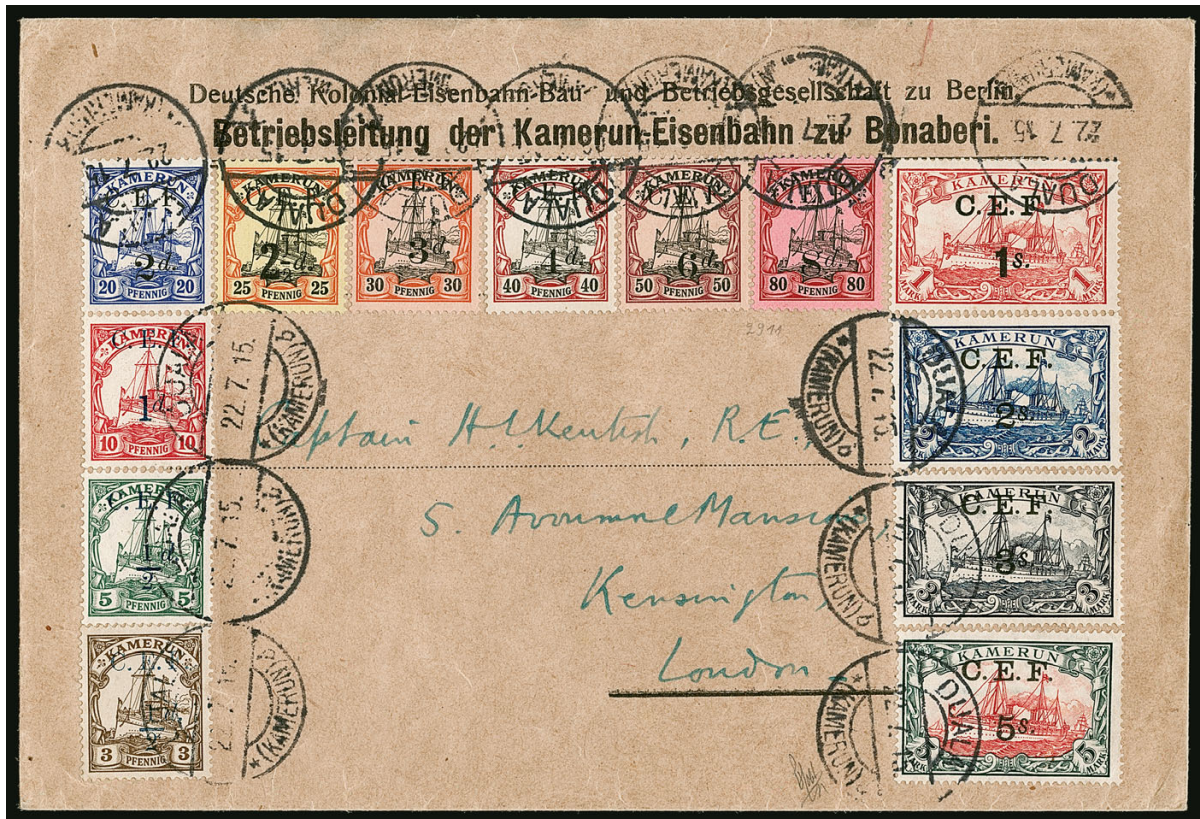 Deutsche Kolonial-Eisenbahn-Bau- und Betriebsgesellschaft zu Berlin.
Betriebsleitung der Kamerun-Eisenbahn zu Bonaberi.
KAMERUN C.E.F. 2d. 20 PFENNIG 20
KAMERUN 25 PFENNIG 25
KAMERUN 3d. 30 PFENNIG 30
KAMERUN 4d. 40 PFENNIG 40
KAMERUN C.E.F. 6d. 50 PFENNIG 50
KAMERUN 8d. 80 PFENNIG 80
KAMERUN C.E.F. 1s. 1 MARK 1 MARK
KAMERUN C.E.F. 1d. 10 PFENNIG 10
KAMERUN C.E.F. 2s. 2 MARK 2 MARK
KAMERUN C.E.F. 1/2 d. 5 PFENNIG 5
KAMERUN C.E.F. 3s. 3 MARK 3 MARK
KAMERUN 3 PFENNIG 3
KAMERUN C.E.F. 5s. 5 MARK 5 MARK
DUALA 22.7.15. *(KAMERUN)b
2911
Captain H. Kentish, R.E.,
5. Mansions
Kensington,
London